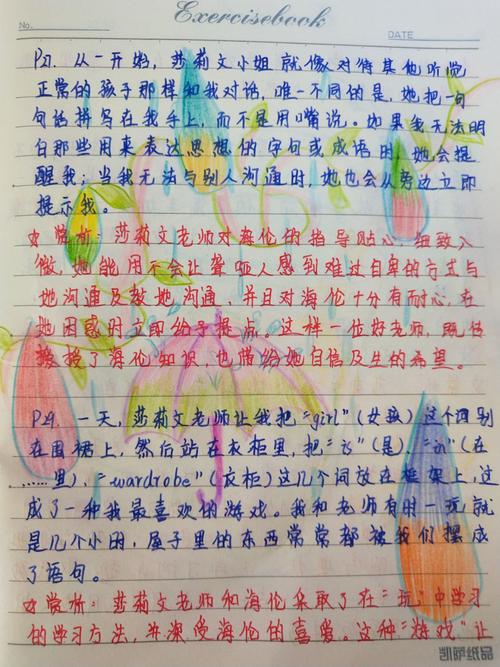 Exercisebook
No.
DATE
P21. 从一开始，莎莉文小姐就像对待其他听觉
正常的孩子那样和我对话，唯一不同的是，她把一句
句话拼写在我手上，而不是用嘴说。如果我无法明
白那些用来表达思想的字句或成语时，她会提
醒我；当我无法与别人沟通时，她也会从旁边立即
提示我。
☆赏析：莎莉文老师对海伦的指导贴心、细致入
微，她能用不会让聋哑人感到难过自卑的方式与
她沟通及教她沟通，并且对海伦十分有耐心，在
她困惑时立即给予提点。这样一位好老师，既传
授了海伦知识，也带给她自信及生的希望。
P29. 一天，莎莉文老师让我把“girl”（女孩）这个词别
在围裙上，然后站在衣柜里，把“is”（是）、“in”（在
……里），“wardrobe”（衣柜）这几个词放在框架上，这
成了一种我最喜欢的游戏。我和老师有时一玩就
是几个小时，屋子里的东西常常都被我们摆成
了语句。
☆赏析：莎莉文老师和海伦采取了在“玩”中学习
的学习方法，并深受海伦的喜爱。这种“游戏”让